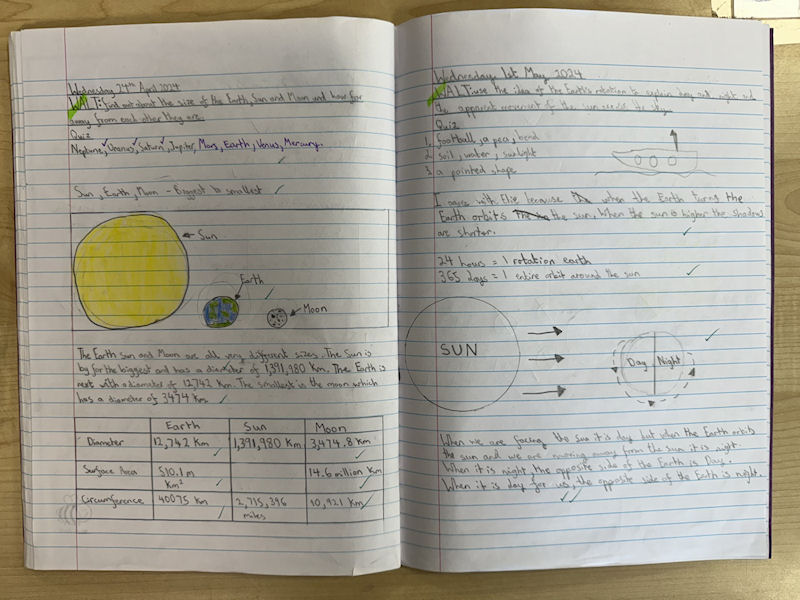 Wednesday 24th April 2024
WALT: find out about the size of the Earth, Sun and Moon and how far
away from each other they are.
Quiz
Neptune, Uranus, Saturn, Jupiter, Mars, Earth, Venus, Mercury.
Sun, Earth, Moon - Biggest to smallest
Sun
Earth
Moon
The Earth Sun and Moon are all very different sizes. The Sun is
by far the biggest and has a diameter of 1,391,980 km. The Earth is
next with a diameter of 12,742 Km. The smallest is the moon which
has a diameter of 3474 km.
Earth Sun Moon
Diameter 12,742 Km 1,391,980 Km 3,474.8 Km
Surface Area 510.1 m Km² 14.6 million Km
Circumference 40075 Km 2,715,396 miles 10,921 Km
Wednesday 1st May 2024
WALT: use the idea of the Earth's rotation to explain day and night and
the apparent movement of the sun across the sky.
Quiz
1. football, a pea, bead
2. soil, water, sunlight
3. a pointed shape
I agree with Elie because when the Earth turns the
Earth orbits the sun. When the sun is higher the shadows
are shorter.
24 hours = 1 rotation earth
365 days = 1 entire orbit around the sun
SUN
Day Night
When we are facing the sun it is day but when the Earth orbits
the sun and we are moving away from the sun it is night.
When it is night the opposite side of the Earth is Day.
When it is day for us, the opposite side of the Earth is night.